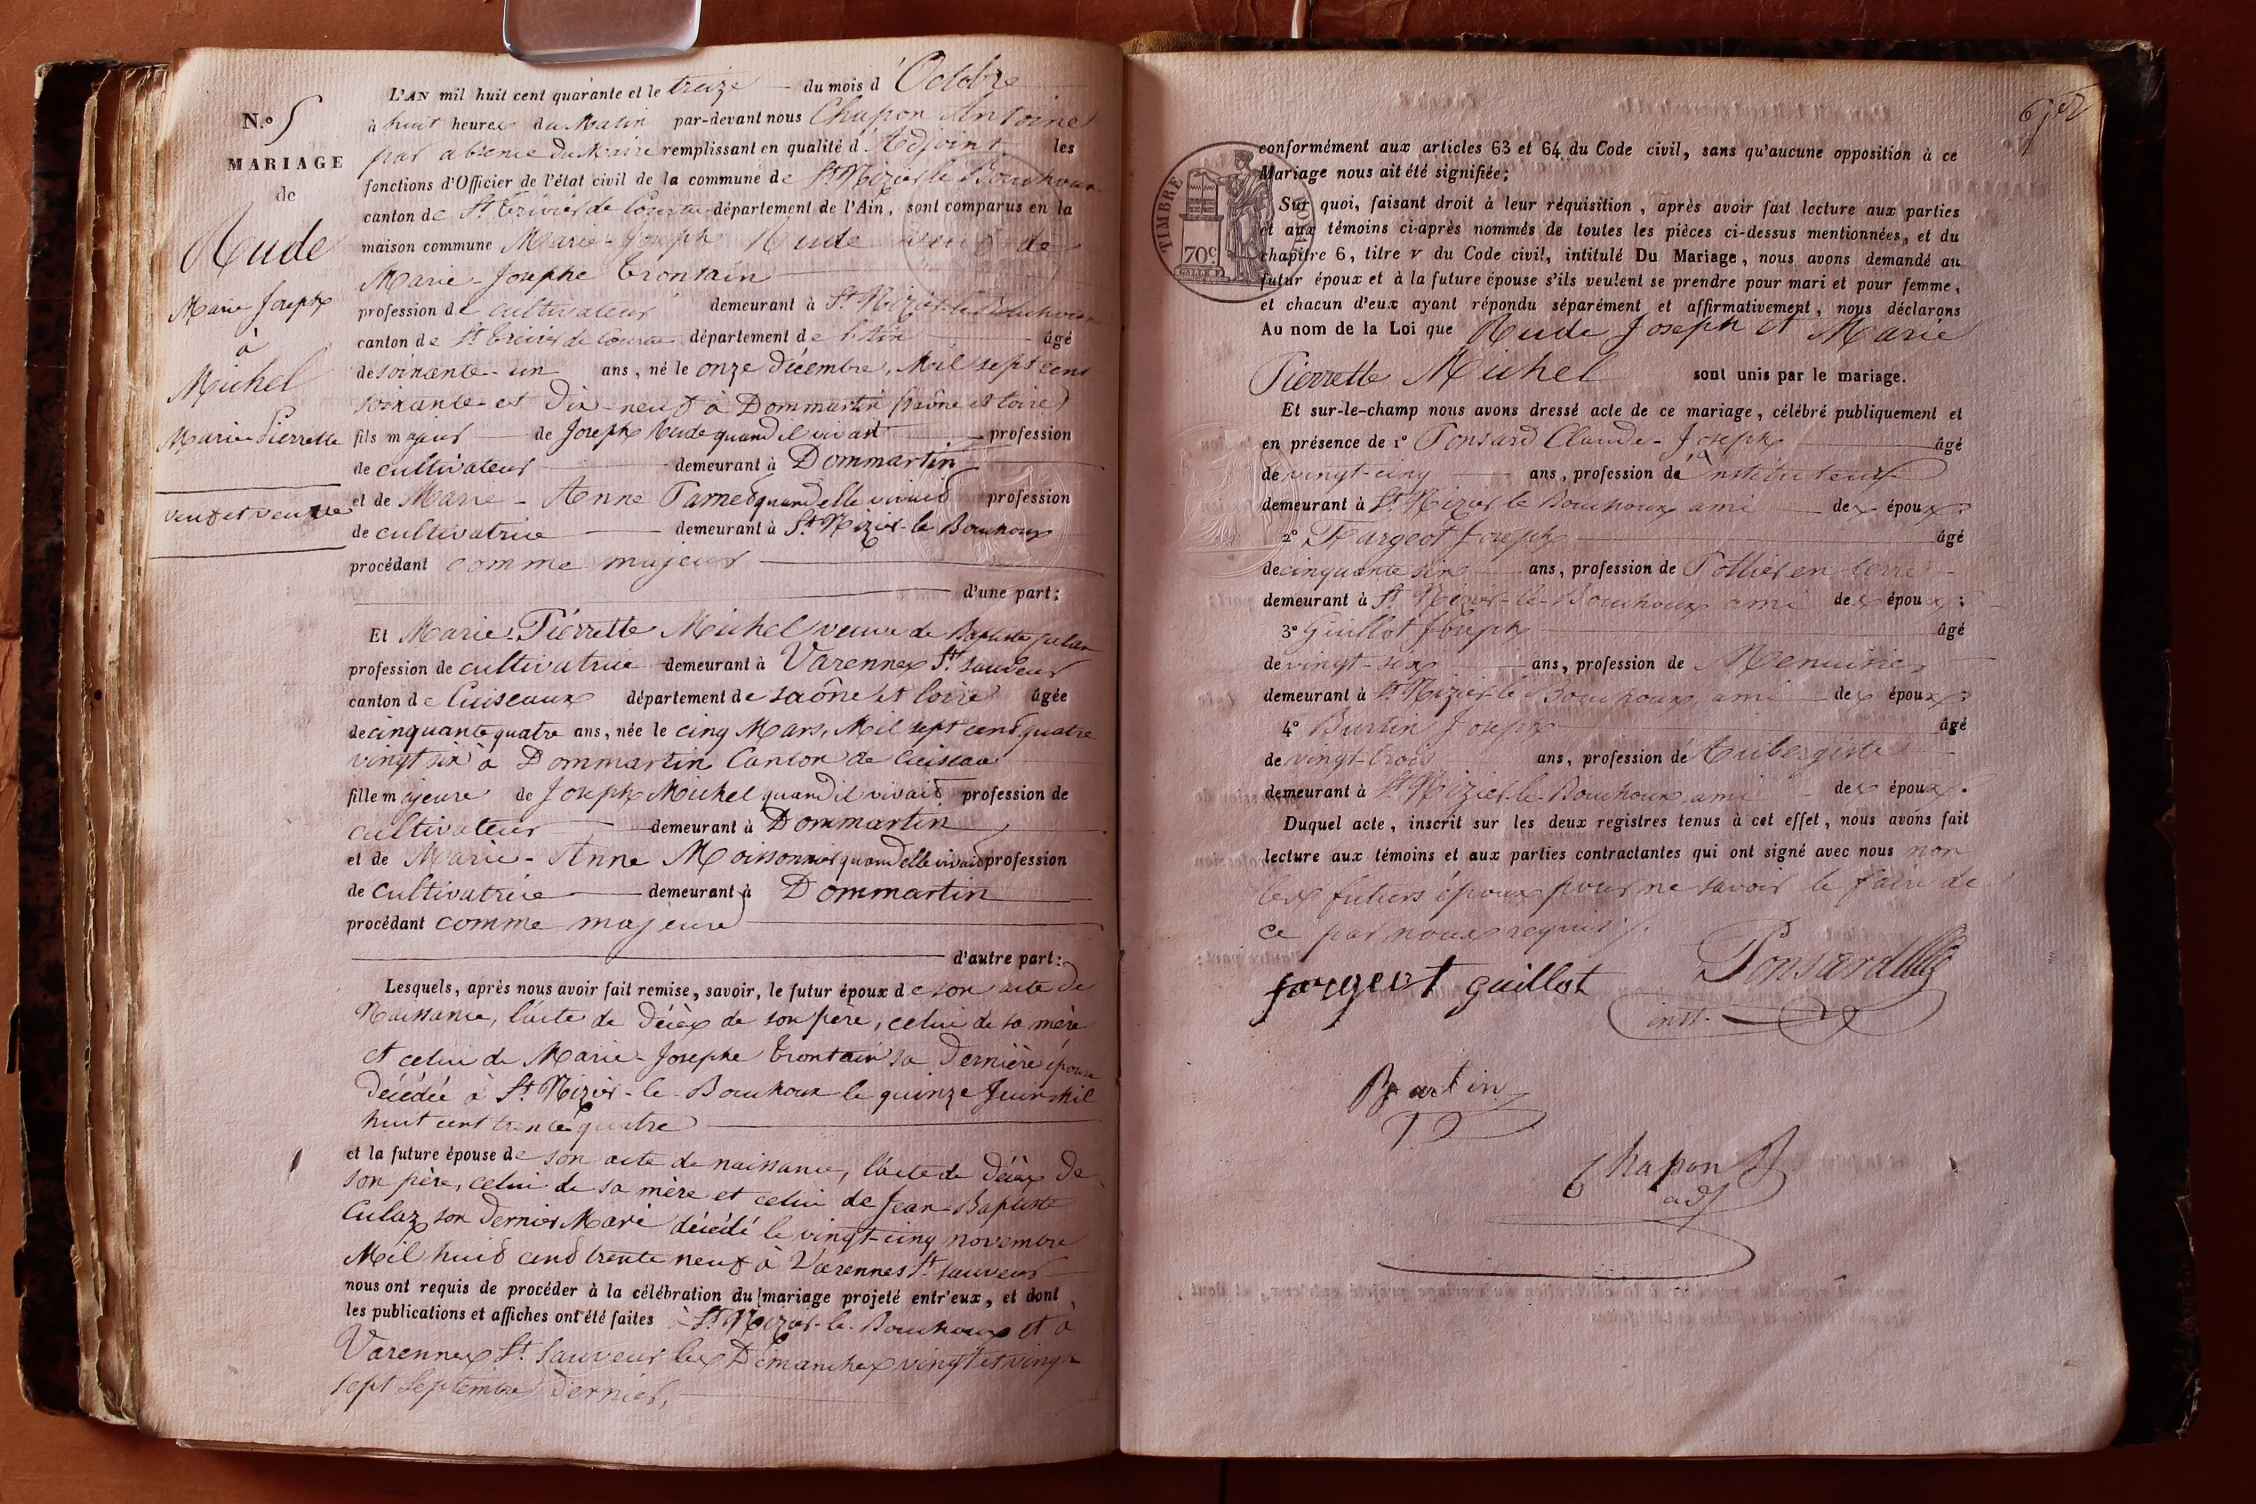 N.º 5
MARIAGE
de
Rude
Marie Joseph
à
Michel
Marie Pierrette
veuf et veuve
L'AN mil huit cent quarante et le treize du mois d'Octobre
à huit heures du Matin par-devant nous Chapon Antoine
par absence du Maire remplissant en qualité d'Adjoint les
fonctions d'Officier de l'état civil de la commune de St Nizier le Bouchoux
canton de St Trivier de Courtes département de l'Ain, sont comparus en la
maison commune Marie-Joseph Rude veuf de
Marie-Josephe Trontain
profession de cultivateur demeurant à St Nizier-le-Bouchoux
canton de St Trivier de Courtes département de l'Ain âgé
de soixante-un ans, né le onze décembre, Mil sept cent
soixante et dix-neuf à Dommartin (Saône et Loire)
fils majeur de Joseph Rude quand il vivait profession
de cultivateur demeurant à Dommartin
et de Marie-Anne quand elle vivait profession
de cultivatrice demeurant à St Nizier-le Bouchoux
procédant comme majeur
d'une part;
Et Marie-Pierrette Michel veuve de Baptiste
profession de cultivatrice demeurant à Varennes St Sauveur
canton de Cuiseaux département de Saône et Loire âgée
de cinquante quatre ans, née le cinq Mars, Mil sept cent quatre
vingt six à Dommartin Canton de Cuiseau
fille majeure de Joseph Michel quand il vivait profession de
cultivateur demeurant à Dommartin
et de Marie-Anne Moissonnier quand elle vivait profession
de cultivatrice demeurant à Dommartin
procédant comme majeure
d'autre part:
Lesquels, après nous avoir fait remise, savoir, le futur époux de son acte de
Naissance, l'acte de décès de son père, celui de sa mère
et celui de Marie-Josephe Trontain sa dernière épouse
décédée à St Nizier-le-Bouchoux le quinze Juin Mil
huit cent trente quatre
et la future épouse de son acte de naissance, l'acte de décès de
son père, celui de sa mère et celui de Jean-Baptiste
Culaz son dernier Mari décédé le vingt-cinq novembre
Mil huit cent trente neuf à Varennes St Sauveur
nous ont requis de procéder à la célébration du mariage projeté entr'eux, et dont
les publications et affiches ont été faites à St Nizier-le-Bouchoux et à
Varennes St Sauveur les Dimanches vingt et vingt
sept Septembre dernier,
TIMBRE
70c.
conformément aux articles 63 et 64 du Code civil, sans qu'aucune opposition à ce
Mariage nous ait été signifiée;
Sur quoi, faisant droit à leur réquisition, après avoir fait lecture aux parties
et aux témoins ci-après nommés de toutes les pièces ci-dessus mentionnées, et du
chapitre 6, titre v du Code civil, intitulé Du Mariage, nous avons demandé au
futur époux et à la future épouse s'ils veulent se prendre pour mari et pour femme,
et chacun d'eux ayant répondu séparément et affirmativement, nous déclarons
Au nom de la Loi que Rude Joseph et Marie
Pierrette Michel sont unis par le mariage.
Et sur-le-champ nous avons dressé acte de ce mariage, célébré publiquement et
en présence de 1º Ponsard Claude-Joseph âgé
de vingt-cinq ans, profession de Instituteur
demeurant à St Nizier le Bouchoux ami des époux;
2º Fargeot Joseph âgé
de cinquante six ans, profession de Pottier en terre
demeurant à St Nizier-le-Bouchoux ami des époux;
3º Guillot Joseph âgé
de vingt-six ans, profession de Menuisier
demeurant à St Nizier-le Bouchoux ami des époux;
4º Burtin Joseph âgé
de vingt-trois ans, profession de Aubergiste
demeurant à St Nizier-le-Bouchoux ami des époux.
Duquel acte, inscrit sur les deux registres tenus à cet effet, nous avons fait
lecture aux témoins et aux parties contractantes qui ont signé avec nous non
les futurs époux pour ne savoir le faire de
ce par nous requis
fargeot guillot Ponsard
inst.
Burtin
Chapon
adj